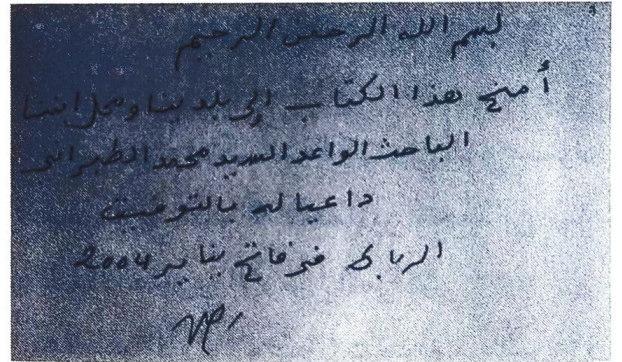 بسم الله الرحمن الرحيم
أمنح هذا الكتاب إلى بلدينا ومحل
الباحث الواعد السيد محمد الطبراني
داعيا له بالتوفيق
الرباط في فاتح يناير 2004